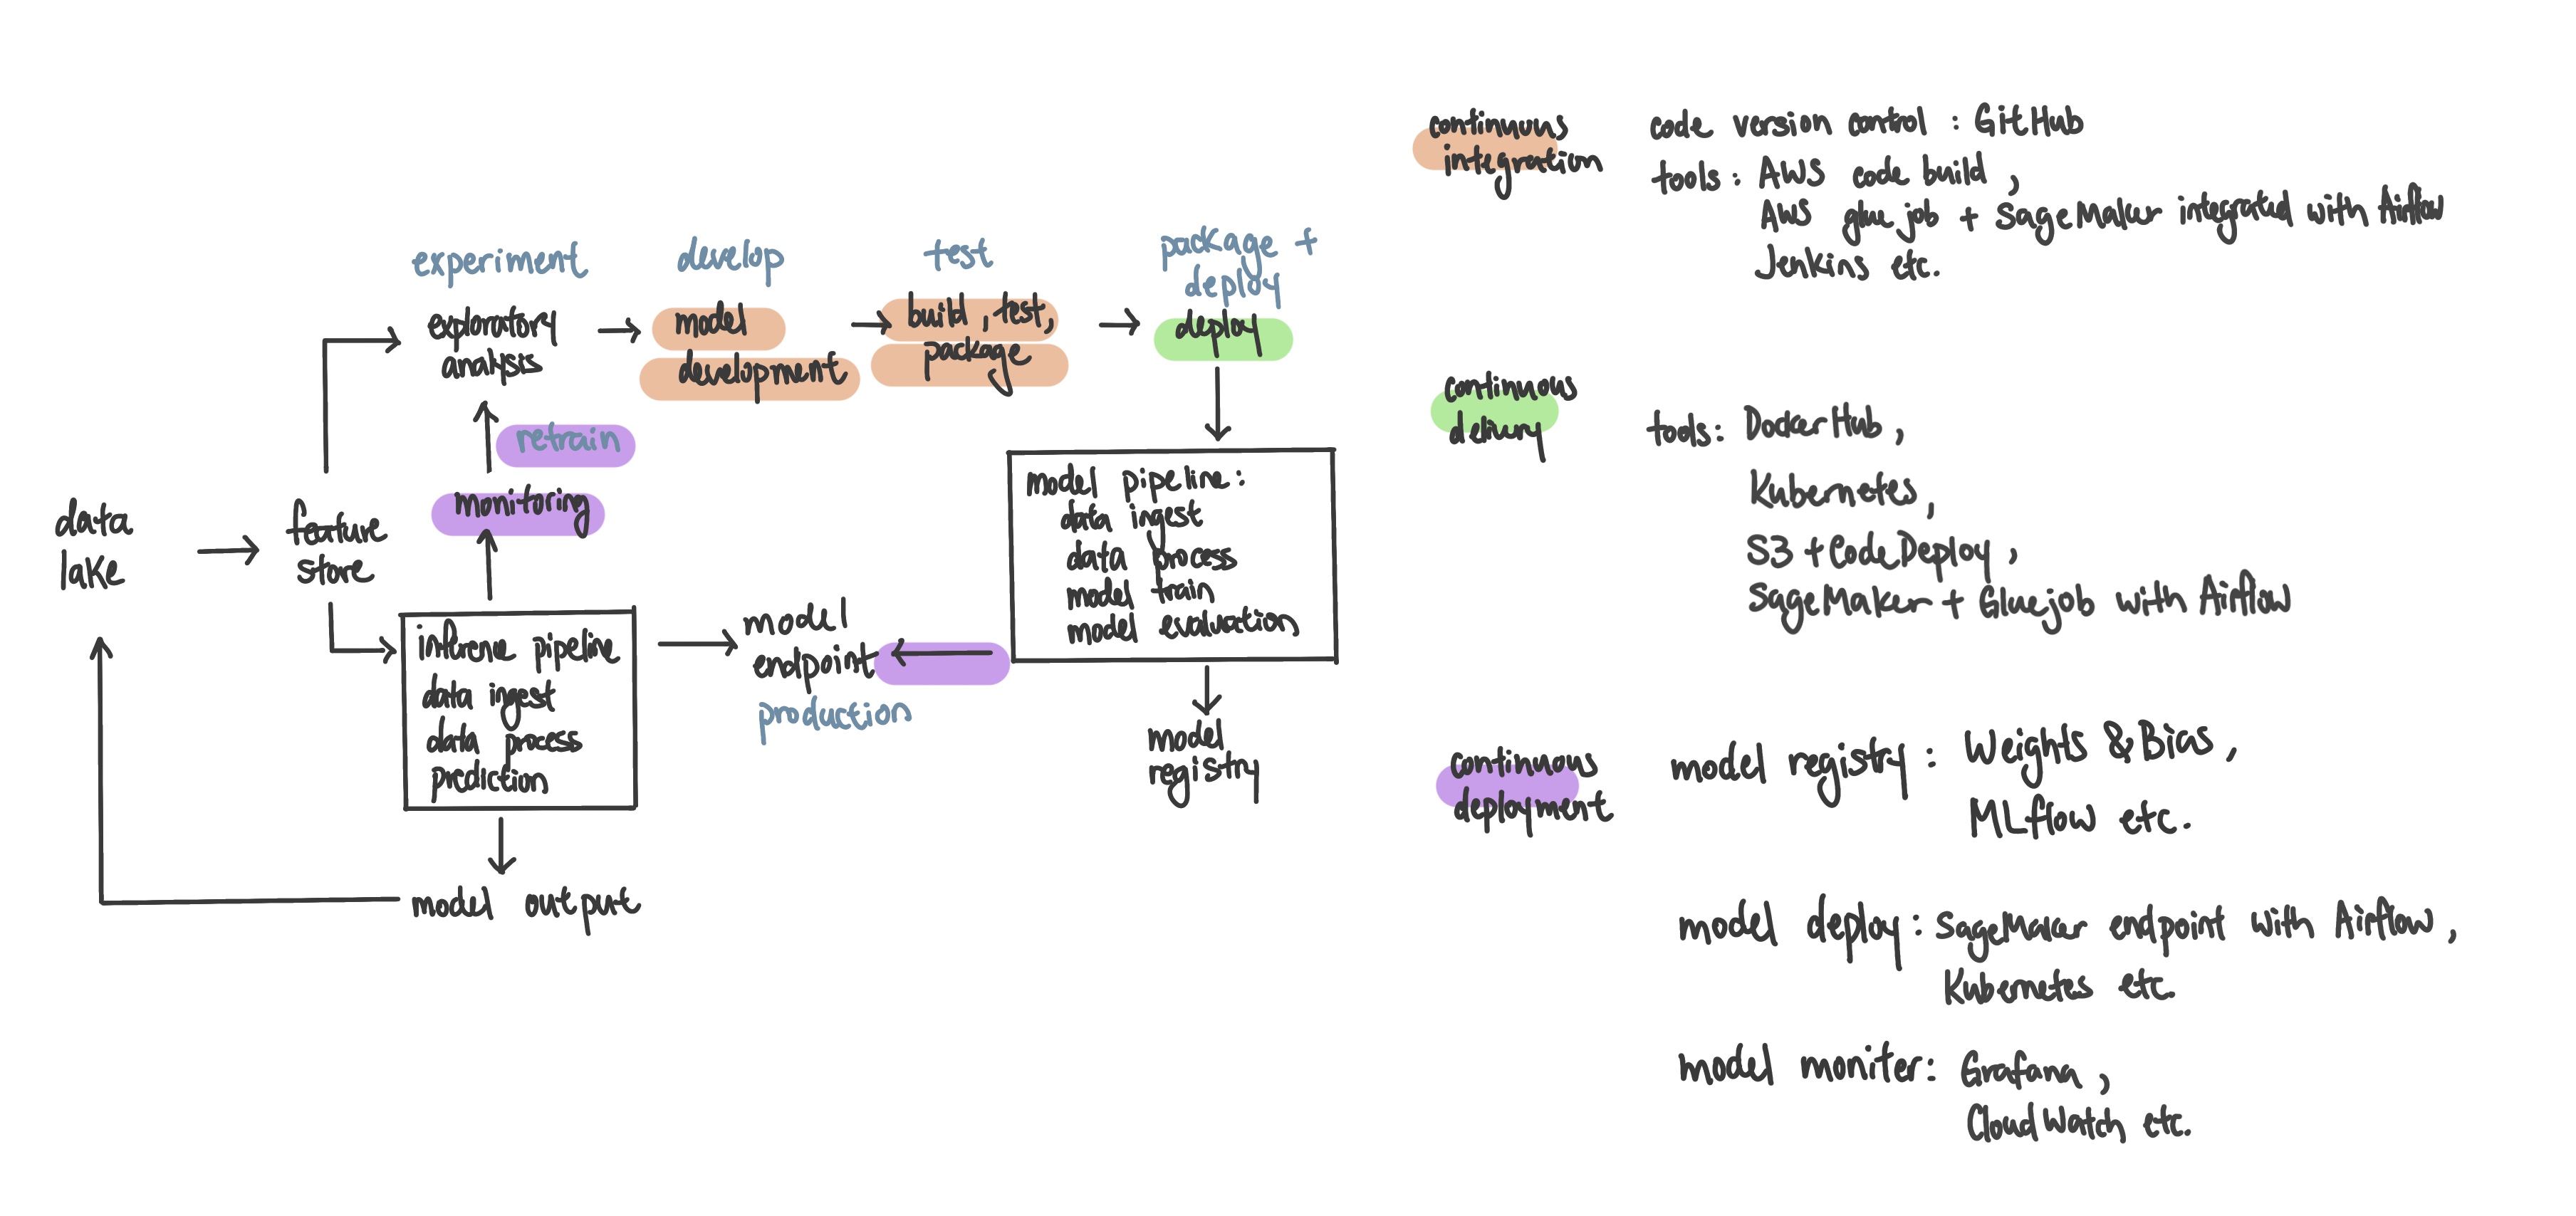 experiment
exploratory
analysis
develop
model
development
test
build, test,
package
package +
deploy
deploy
retrain
monitoring
data
lake
feature
store
inference pipeline
data ingest
data process
prediction
model output
model
endpoint
production
model pipeline:
data ingest
data process
model train
model evaluation
model
registry
continuous
integration
code version control : GitHub
tools: AWS code build,
AWS glue job + SageMaker integrated with Airflow
Jenkins etc.
continuous
delivery
tools: DockerHub,
Kubernetes,
S3 + CodeDeploy,
SageMaker + Gluejob with Airflow
continuous
deployment
model registry: Weights & Bias,
MLflow etc.
model deploy: SageMaker endpoint with Airflow,
Kubernetes etc.
model moniter: Grafana,
CloudWatch etc.